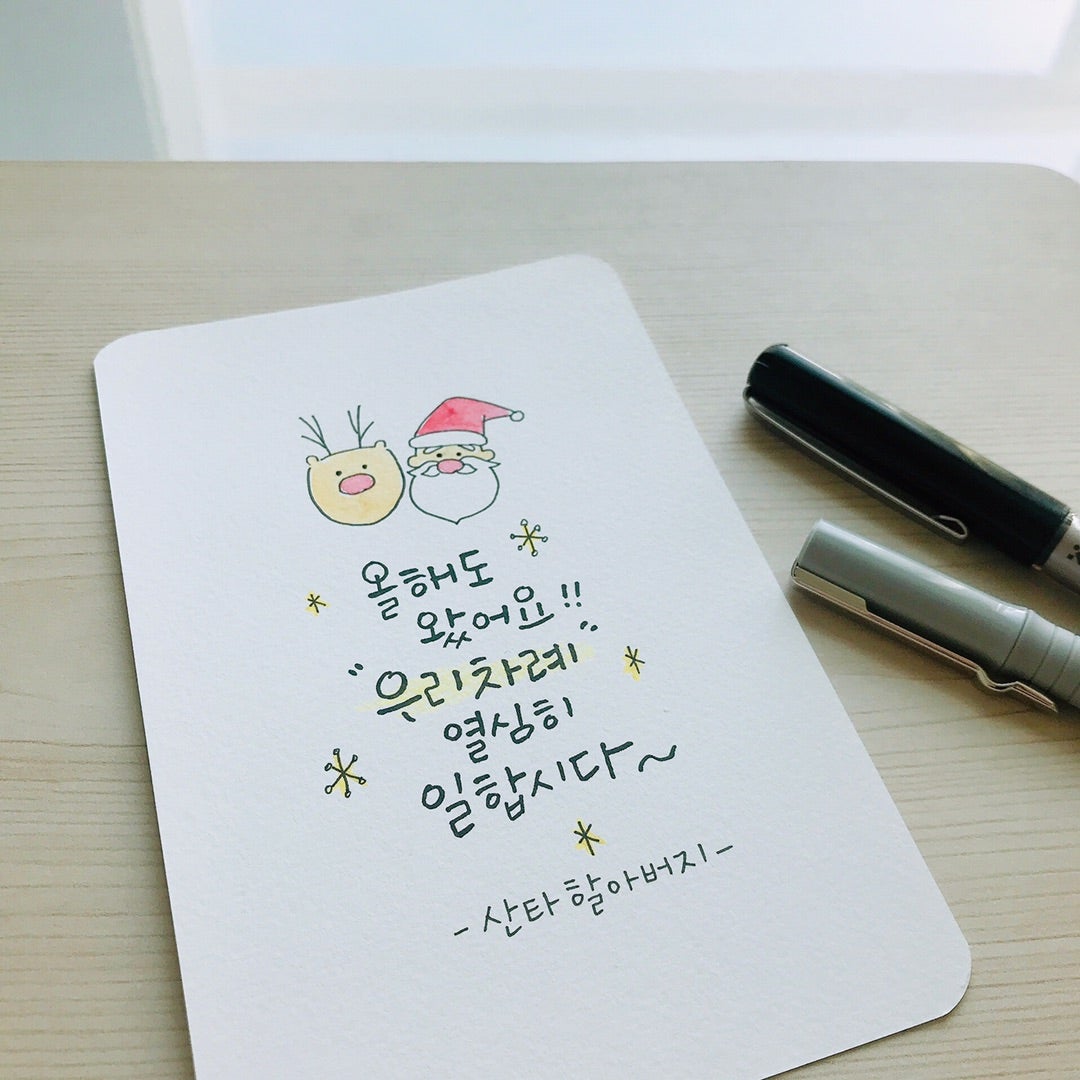 올해도
왔어요!!
"우리차례"
열심히
일합시다~
- 산타 할아버지 -